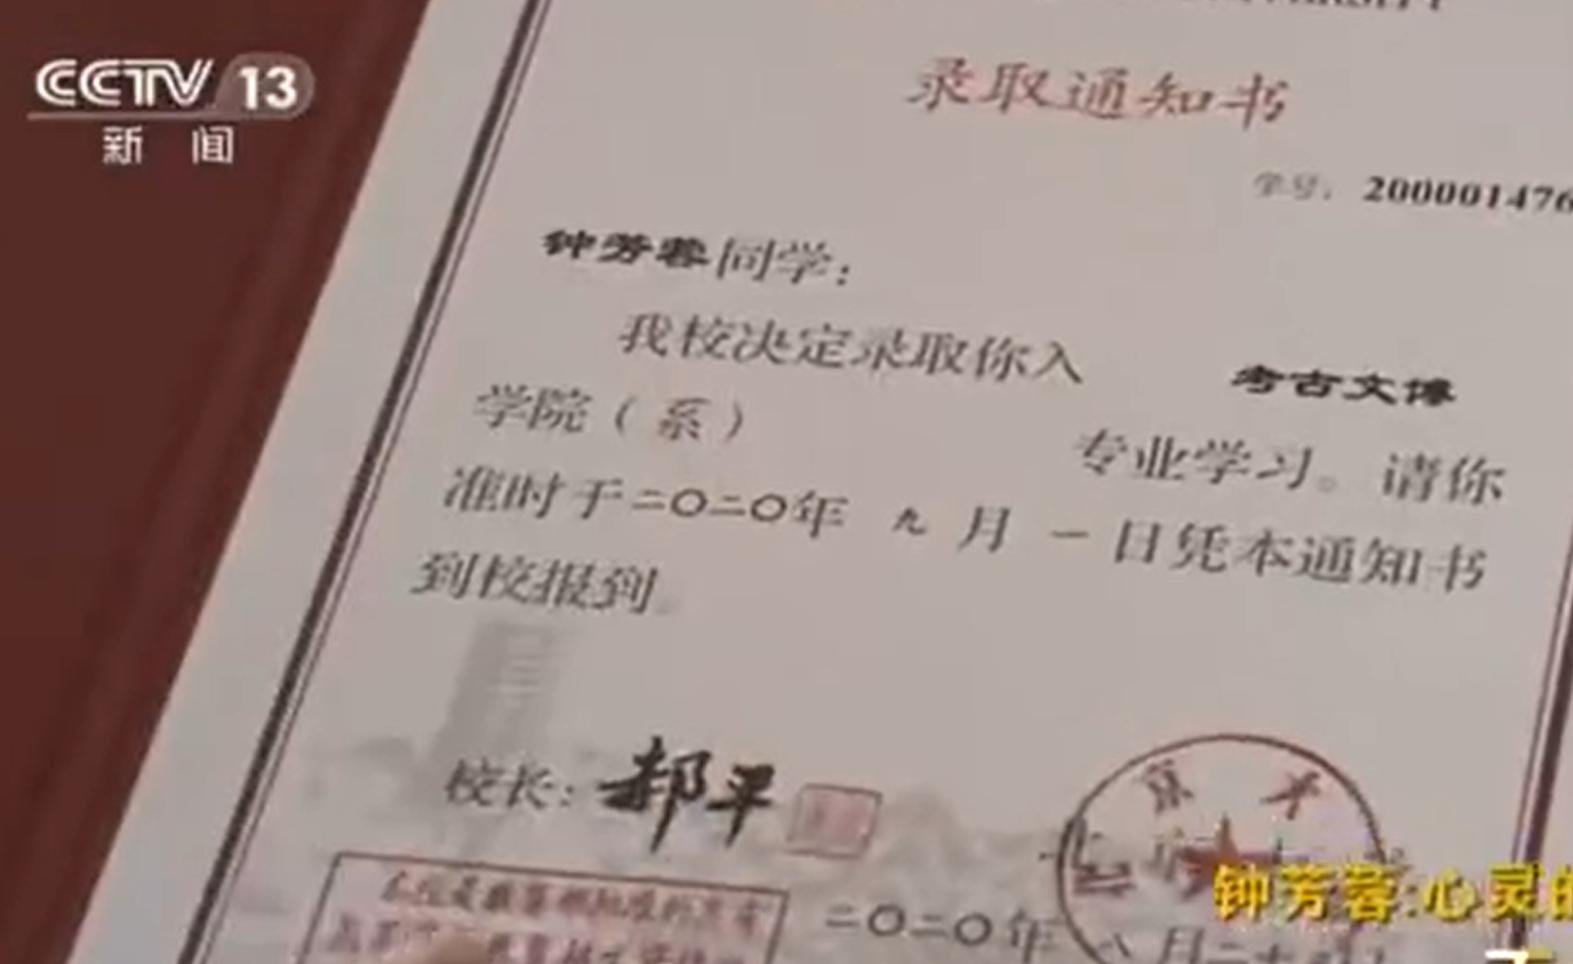 CCTV 13
新闻
录取通知书
学号:200001476
钟芳蓉同学:
我校决定录取你入 考古文博
学院(系) 专业学习。请你
准时于二〇二〇年 九 月 一 日凭本通知书
到校报到。
校长:郝平
北京大
二〇二〇年 八 月二十
钟芳蓉:心灵的